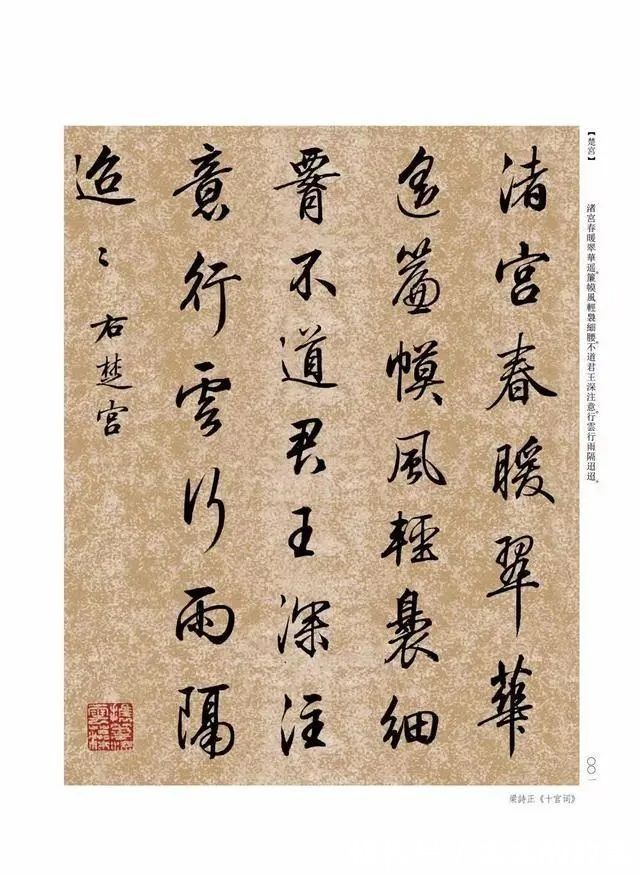 【楚宮】
渚宮春暖翠華遥。簾幙風輕裊細腰。不道君王深注意。行雲行雨隔迢迢。
渚宮春暖翠華
遥簾幙風輕裊細
腰不道君王深注
意行雲行雨隔
迢〻
右楚宮
〇〇一
梁詩正《十官词》